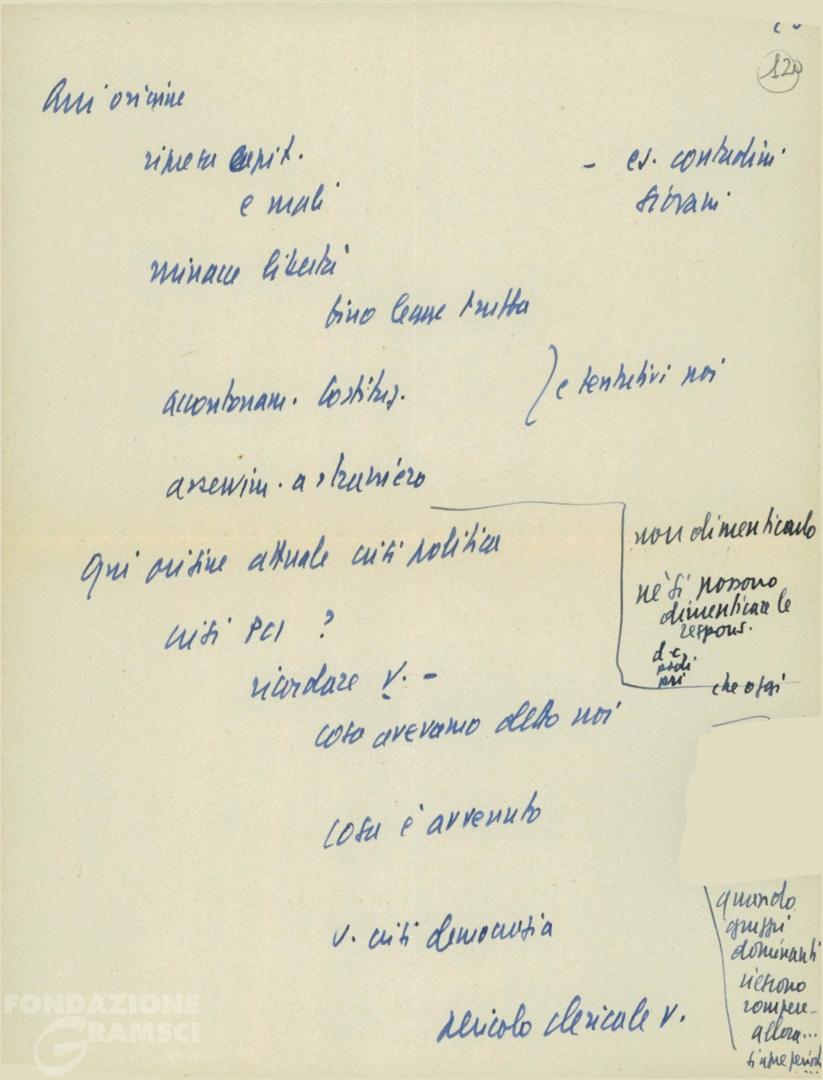 120
Qui origine
ripresa capit. - es. contadini
e mali giovani
minacce libertà
sino legge truffa
accantonam. Costituz. ) e tentativi noi
asservim. a straniero
non dimenticarlo
Qui origine attuale crisi politica
nè si possono
dimenticare le
respons.
crisi PCI ?
di
che oggi
ricordare v. -
cosa avevamo detto noi
cosa è avvenuto
quando
gruppi
dominanti
v. crisi democrazia
riescono
rompere -
allora...
pericolo clericale v.
si apre
FONDAZIONE
GRAMSCI